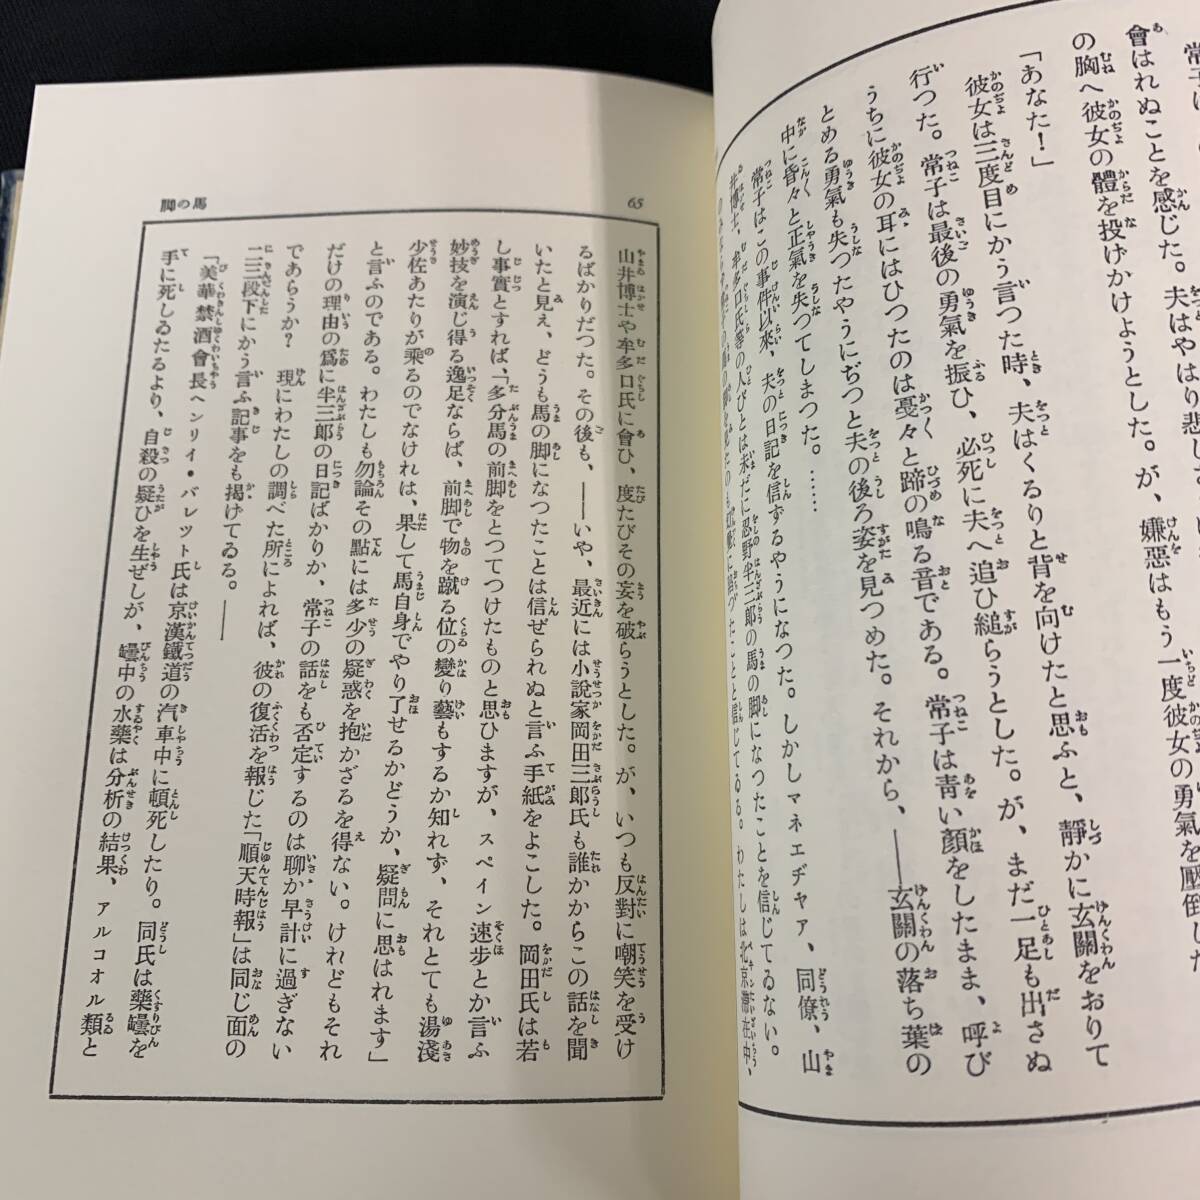 會はれぬことを感じた。夫はやはり悲しさ
の胸へ彼女の體を投げかけようとした。が、嫌惡はもう一度彼女の勇氣を壓倒した
「あなた！」
彼女は三度目にかう言つた時、夫はくるりと背を向けたと思ふと、靜かに玄關をおりて
行つた。常子は最後の勇氣を振ひ、必死に夫へ追ひ縋らうとした。が、まだ一足も出さぬ
うちに彼女の耳にはひつたのは戞々と蹄の鳴る音である。常子は靑い顏をしたまま、呼び
とめる勇氣も失つたやうにぢつと夫の後ろ姿を見つめた。それから、――玄關の落ち葉の
中に昏々と正氣を失つてしまつた。……
常子はこの事件以來、夫の日記を信ずるやうになつた。しかしマネエヂャア、同僚、山
井博士、牟多口氏等の人びとは未だに忍野半三郎の馬の脚になつたことを信じてゐない。
のみならず常子の馬の脚を見たのも幻覺に陷つたことと信じてゐる。わたしは北京滯在中、
脚の馬
65
山井博士や牟多口氏に會ひ、度たびその妄を破らうとした。が、いつも反對に嘲笑を受け
るばかりだつた。その後も、――いや、最近には小說家岡田三郎氏も誰かからこの話を聞
いたと見え、どうも馬の脚になつたことは信ぜられぬと言ふ手紙をよこした。岡田氏は若
し事實とすれば、「多分馬の前脚をとつてつけたものと思ひますが、スペイン速步とか言ふ
妙技を演じ得る逸足ならば、前脚で物を蹴る位の變り藝もするか知れず、それとても湯淺
少佐あたりが乘るのでなければ、果して馬自身でやり了せるかどうか、疑問に思はれます」
と言ふのである。わたしも勿論その點には多少の疑惑を抱かざるを得ない。けれどもそれ
だけの理由の爲に半三郎の日記ばかりか、常子の話をも否定するのは聊か早計に過ぎない
であらうか？　現にわたしの調べた所によれば、彼の復活を報じた「順天時報」は同じ面の
二三段下にかう言ふ記事をも揭げてゐる。――
「美華禁酒會長ヘンリイ・バレツト氏は京漢鐵道の汽車中に頓死したり。同氏は藥罎を
手に死しゐたるより、自殺の疑ひを生ぜしが、罎中の水藥は分析の結果、アルコオル類と